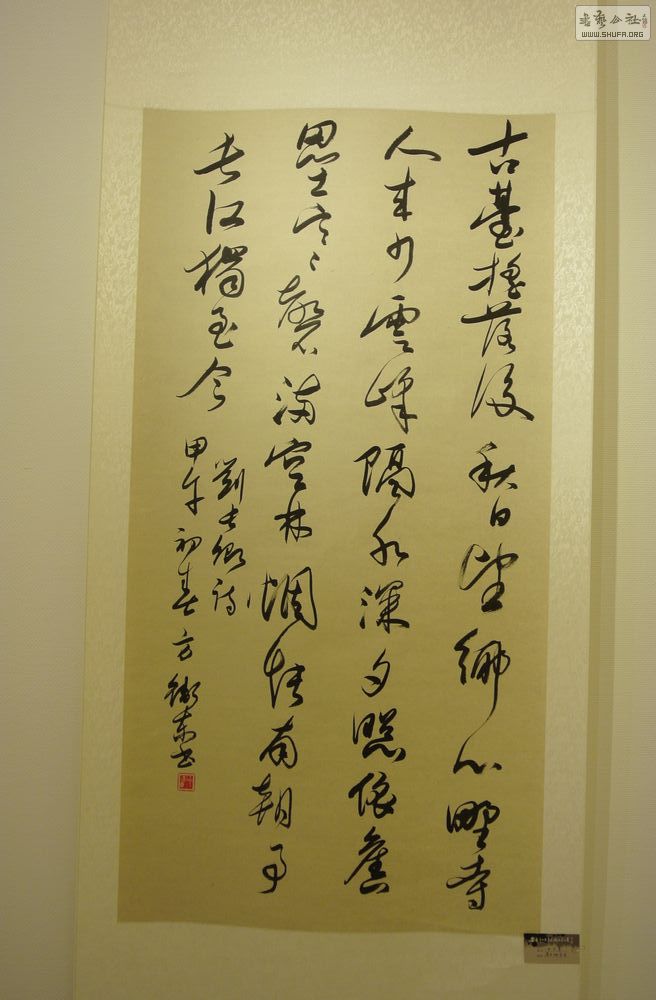 古臺摇落後秋日望鄉心野寺
人来少雲峰隔水深夕照依舊
壘寒磬滿空林惆悵南朝事
長江獨至今
劉長卿詩
甲午初春方衛東書
書藝公社
WWW.SHUFA.ORG